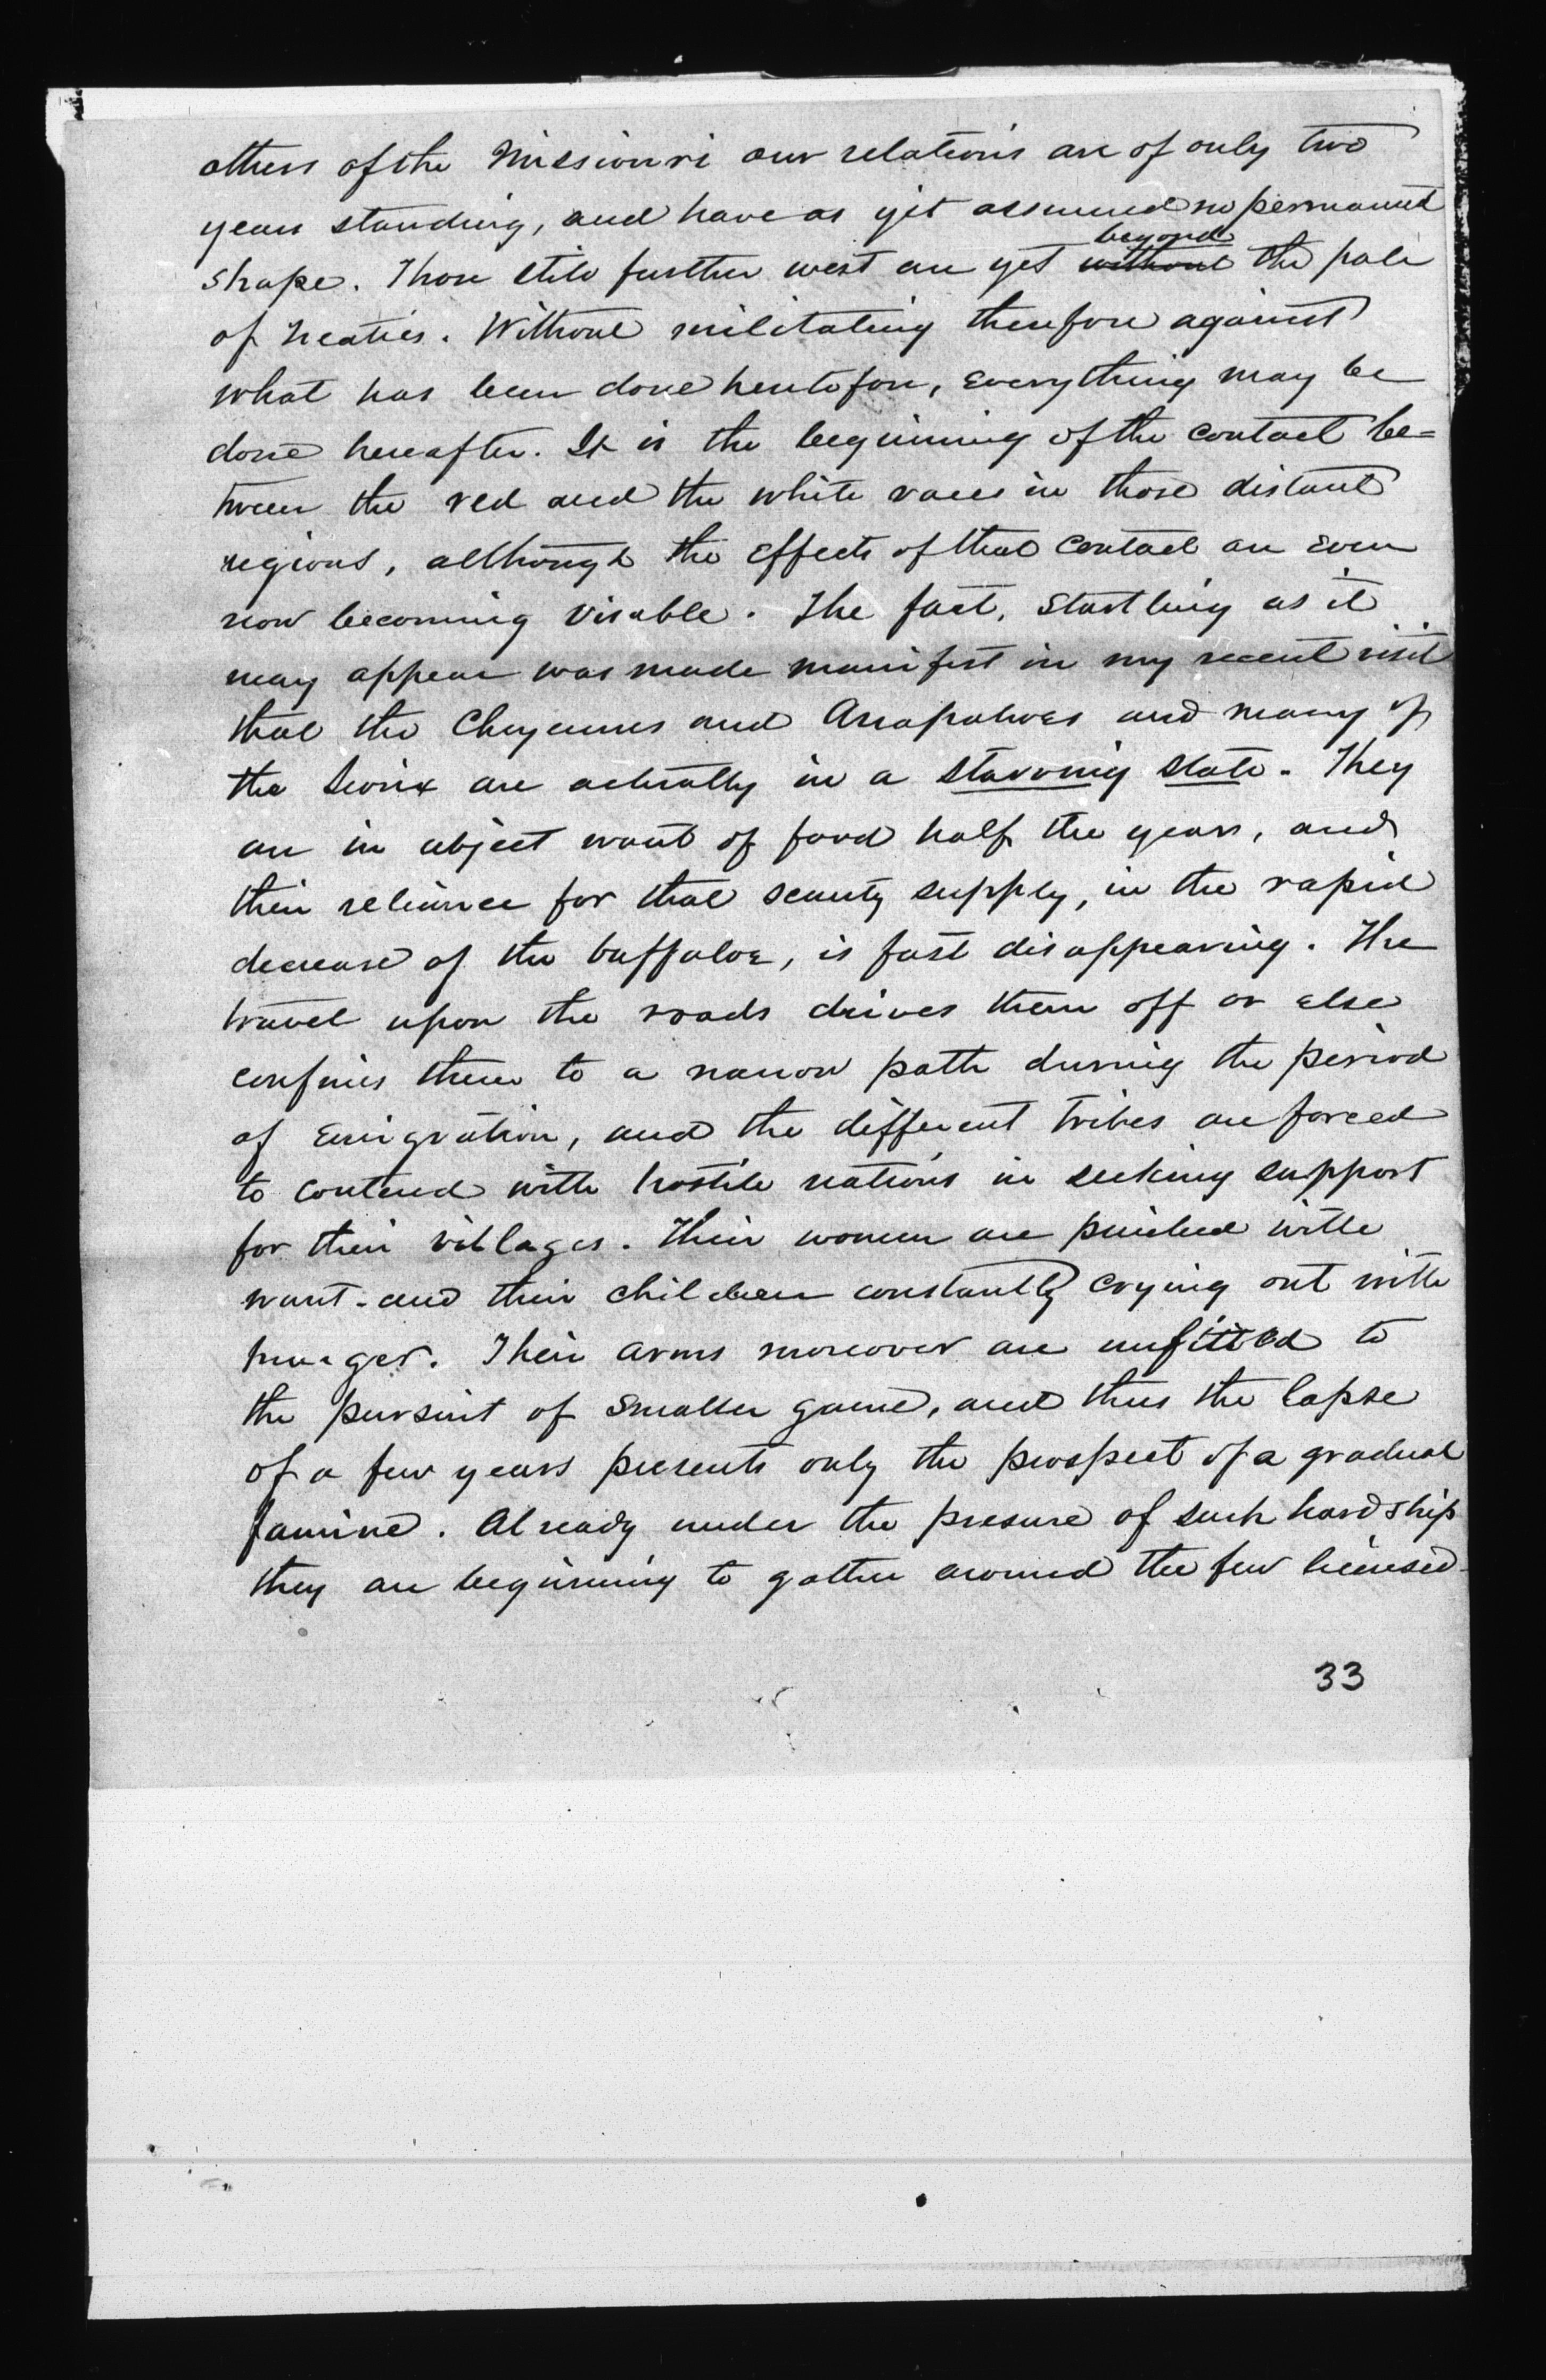 others of the Missiouri our relations are of only two
years standing, and have as yet assumed no permanent
beyond
shape. Those still further west are yet without the pale
of treaties. Without militating therefore against
what has been done heretofore, everything may be
done hereafter. It is the beginning of the contact be=
tween the red and the white races in those distant
regions, although the effects of that contact are even
now becoming visable. The fact, startling as it
may appear was made manifest in my recent visit
that the Cheyennes and Arrapahoes and many of
the Sioux are actually in a starving state. They
are in abject want of food half the year, and
their reliance for that scanty supply, in the rapid
decrease of the buffaloe, is fast disappearing. The
travel upon the roads drives them off or else
confines them to a narrow path during the period
of emigration, and the different tribes are forced
to contend with hostile nations in seeking support
for their villages. Their women are pinched with
want and their children constantly crying out with
hunger. Their arms moreover are unfitted to
the pursuit of smaller game, and thus the lapse
of a few years presents only the prospect of a gradual
famine. Already under the presure of such hardship
they are beginning to gather around the few licensed
33